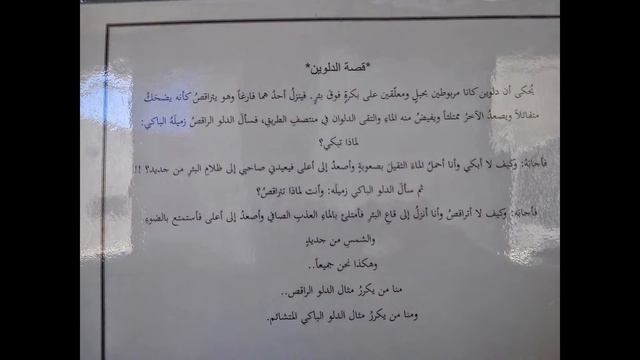 *قصة الدلوين*
يُحكى أن دلوين كانا مربوطين بحبلٍ ومعلّقين على بكرةٍ فوق بئرٍ. فينزلُ أحدُ هما فارغاً وهو يتراقصُ كأنه يضحكُ
متفائلاً ويصعدُ الآخرُ ممتلئاً ويفيضُ منه الماءِ والتقى الدلوان في منتصفِ الطريقِ، فسألَ الدلو الراقصُ زميلَهُ الباكي:
لماذا تبكي؟
فأجابَهُ: وكيف لا أبكي وأنا أحملُ الماءَ الثقيلَ بصعوبةٍ وأصعدُ إلى أعلى فيعيدني صاحبي إلى ظلامِ البئرِ من جديد؟ !!
ثم سألَ الدلو الباكي زميلَه: وأنت لماذا تتراقصُ؟
فأجابه: وكيف لا أتراقصُ وأنا أنزلُ إلى قاعِ البئرِ فأمتلئ بالماءِ العذبِ الصافي وأصعدُ إلى أعلى فأستمتع بالضوءِ
والشمسِ من جديدٍ
وهكذا نحن جميعاً..
منا من يكررُ مثال الدلو الراقص..
ومنا من يكررُ مثال الدلو الباكي المتشائم.